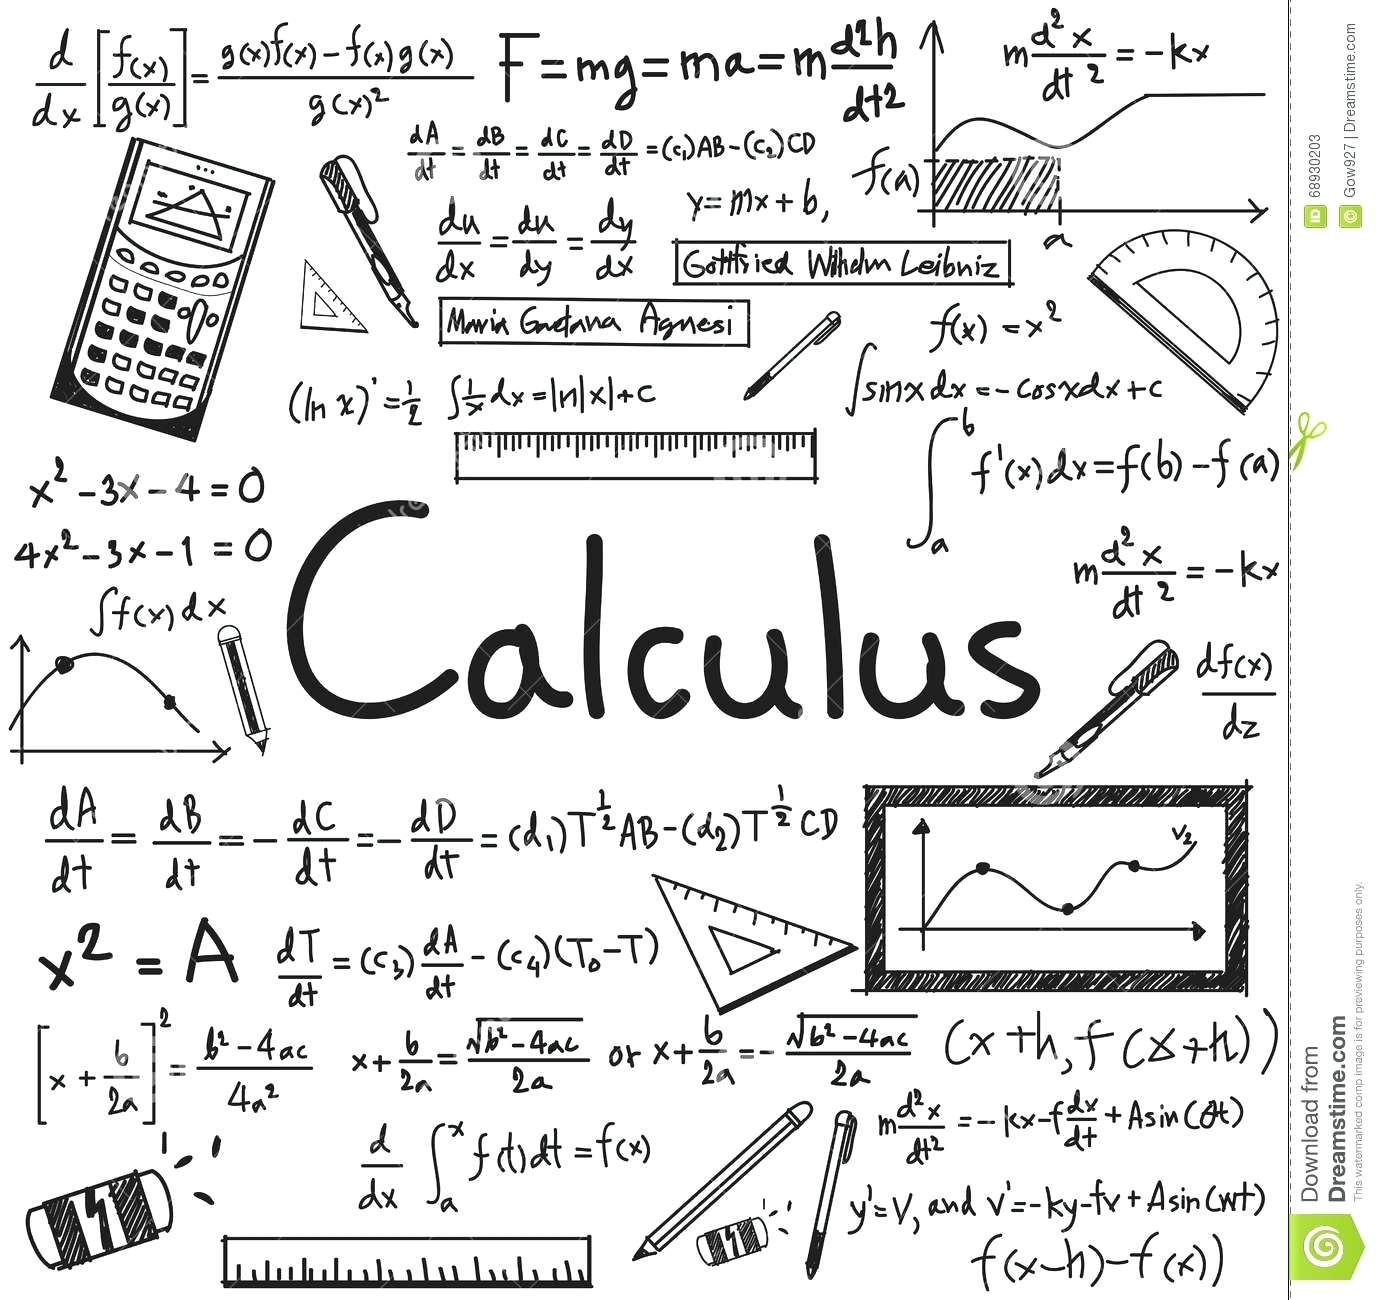 d/dx [f(x)/g(x)] = g(x)f(x) - f(x)g(x) / g(x)²
F = mg = ma = m d²h/dt2
m d²x/dt² = -kx
dA/dt = dB/dt = dC/dt = dD/dt = (c₁)AB-(c₂)CD
f(a)
a
y = mx + b,
du/dx = du/dy = dy/dx
Gottfried Wilhelm Leibniz
Maria Gaetana Agnesi
f(x) = x²
(ln x)' = 1/2
∫ 1/x dx = ln|x| + c
∫ sinx dx = - cosxdx + c
x² - 3x - 4 = 0
∫ₐᵇ f'(x) dx = f(b) - f(a)
4x² - 3x - 1 = 0
m d²x/dt² = -kx
∫f(x) dx
Calculus
df(x)/dz
dA/dt = dB/dt = - dC/dt = - dD/dt = (d₁)T^½ AB - (d₂)T^½ CD
V₂
x² = A
dT/dt = (c₃) dA/dt - (c₄)(T₀-T)
[x + b/2a]² = b² - 4ac / 4a²
x + b/2a = √b² - 4ac / 2a or x + b/2a = - √b² - 4ac / 2a
(x+h, f(x+h))
m d²x/dt² = - kx - f dx/dt + A sin(
d/dx ∫ₐˣ f(t)dt = f(x)
y' = V, and v' = -ky - fv + A sin(wt)
f(x-h) - f(x))
ID 68930203
© Gow927 | Dreamstime.com
Download from
Dreamstime.com
This watermarked comp image is for previewing purposes only.